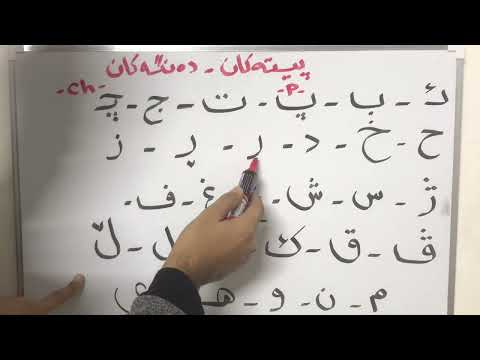 پیتەکان - دەنگەکان
-P- -Ch-
ئ - ب - پ - ت - ج - چ
ح - خ - د - ر - ڕ - ز
ژ - س - ش - غ - ف -
ڤ - ق - ك - ل - ڵ
م - ن - و - هـ